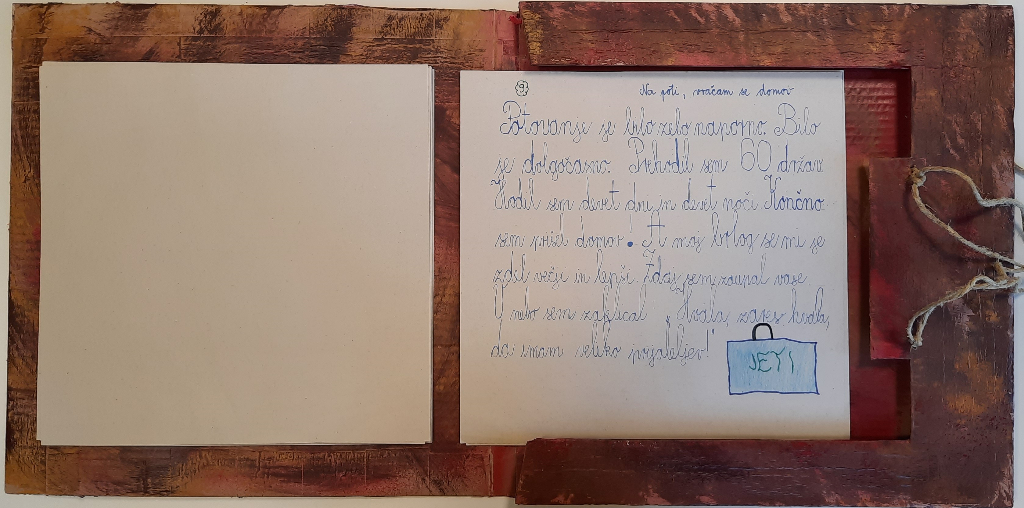 Na poti, vračam se domov
Potovanje je bilo zelo naporno. Bilo
je dolgočasno. Prehodil sem 60 držav
Hodil sem devet dni in devet noči Končno
sem prišel domov! A moj brlog se mi je
zdel večji in lepši. Zdaj sem zaupal vase
V nebo sem zaklical "Hvala, zares hvala,
da imam veliko prijateljev!"
JETI